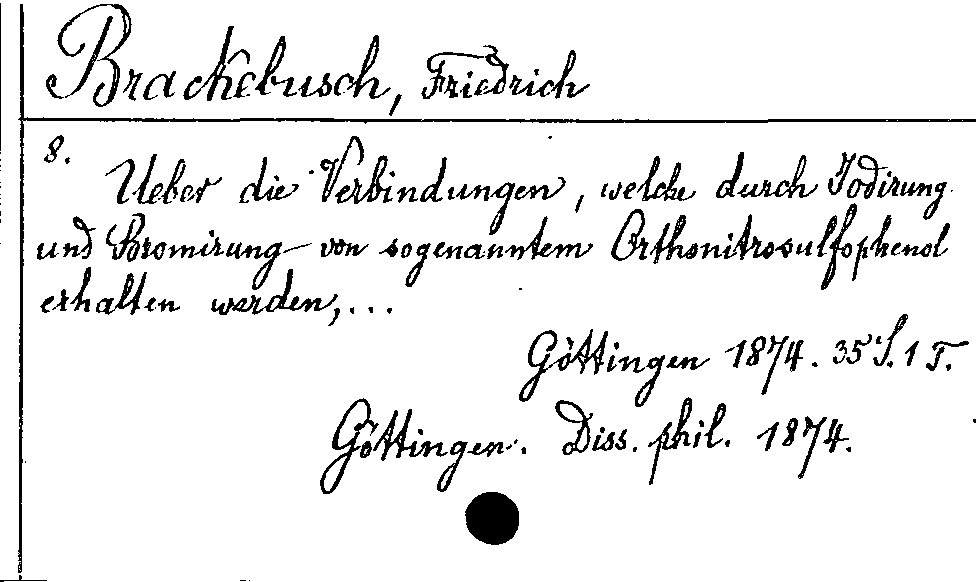 Brackebusch, Friedrich
8.
Ueber die Verbindungen, welche durch Jodirung
und Bromirung von sogenanntem Orthonitrosulfophenol
erhalten werden,...
Göttingen 1874. 35 S. 1 T.
Göttingen. Diss. phil. 1874.